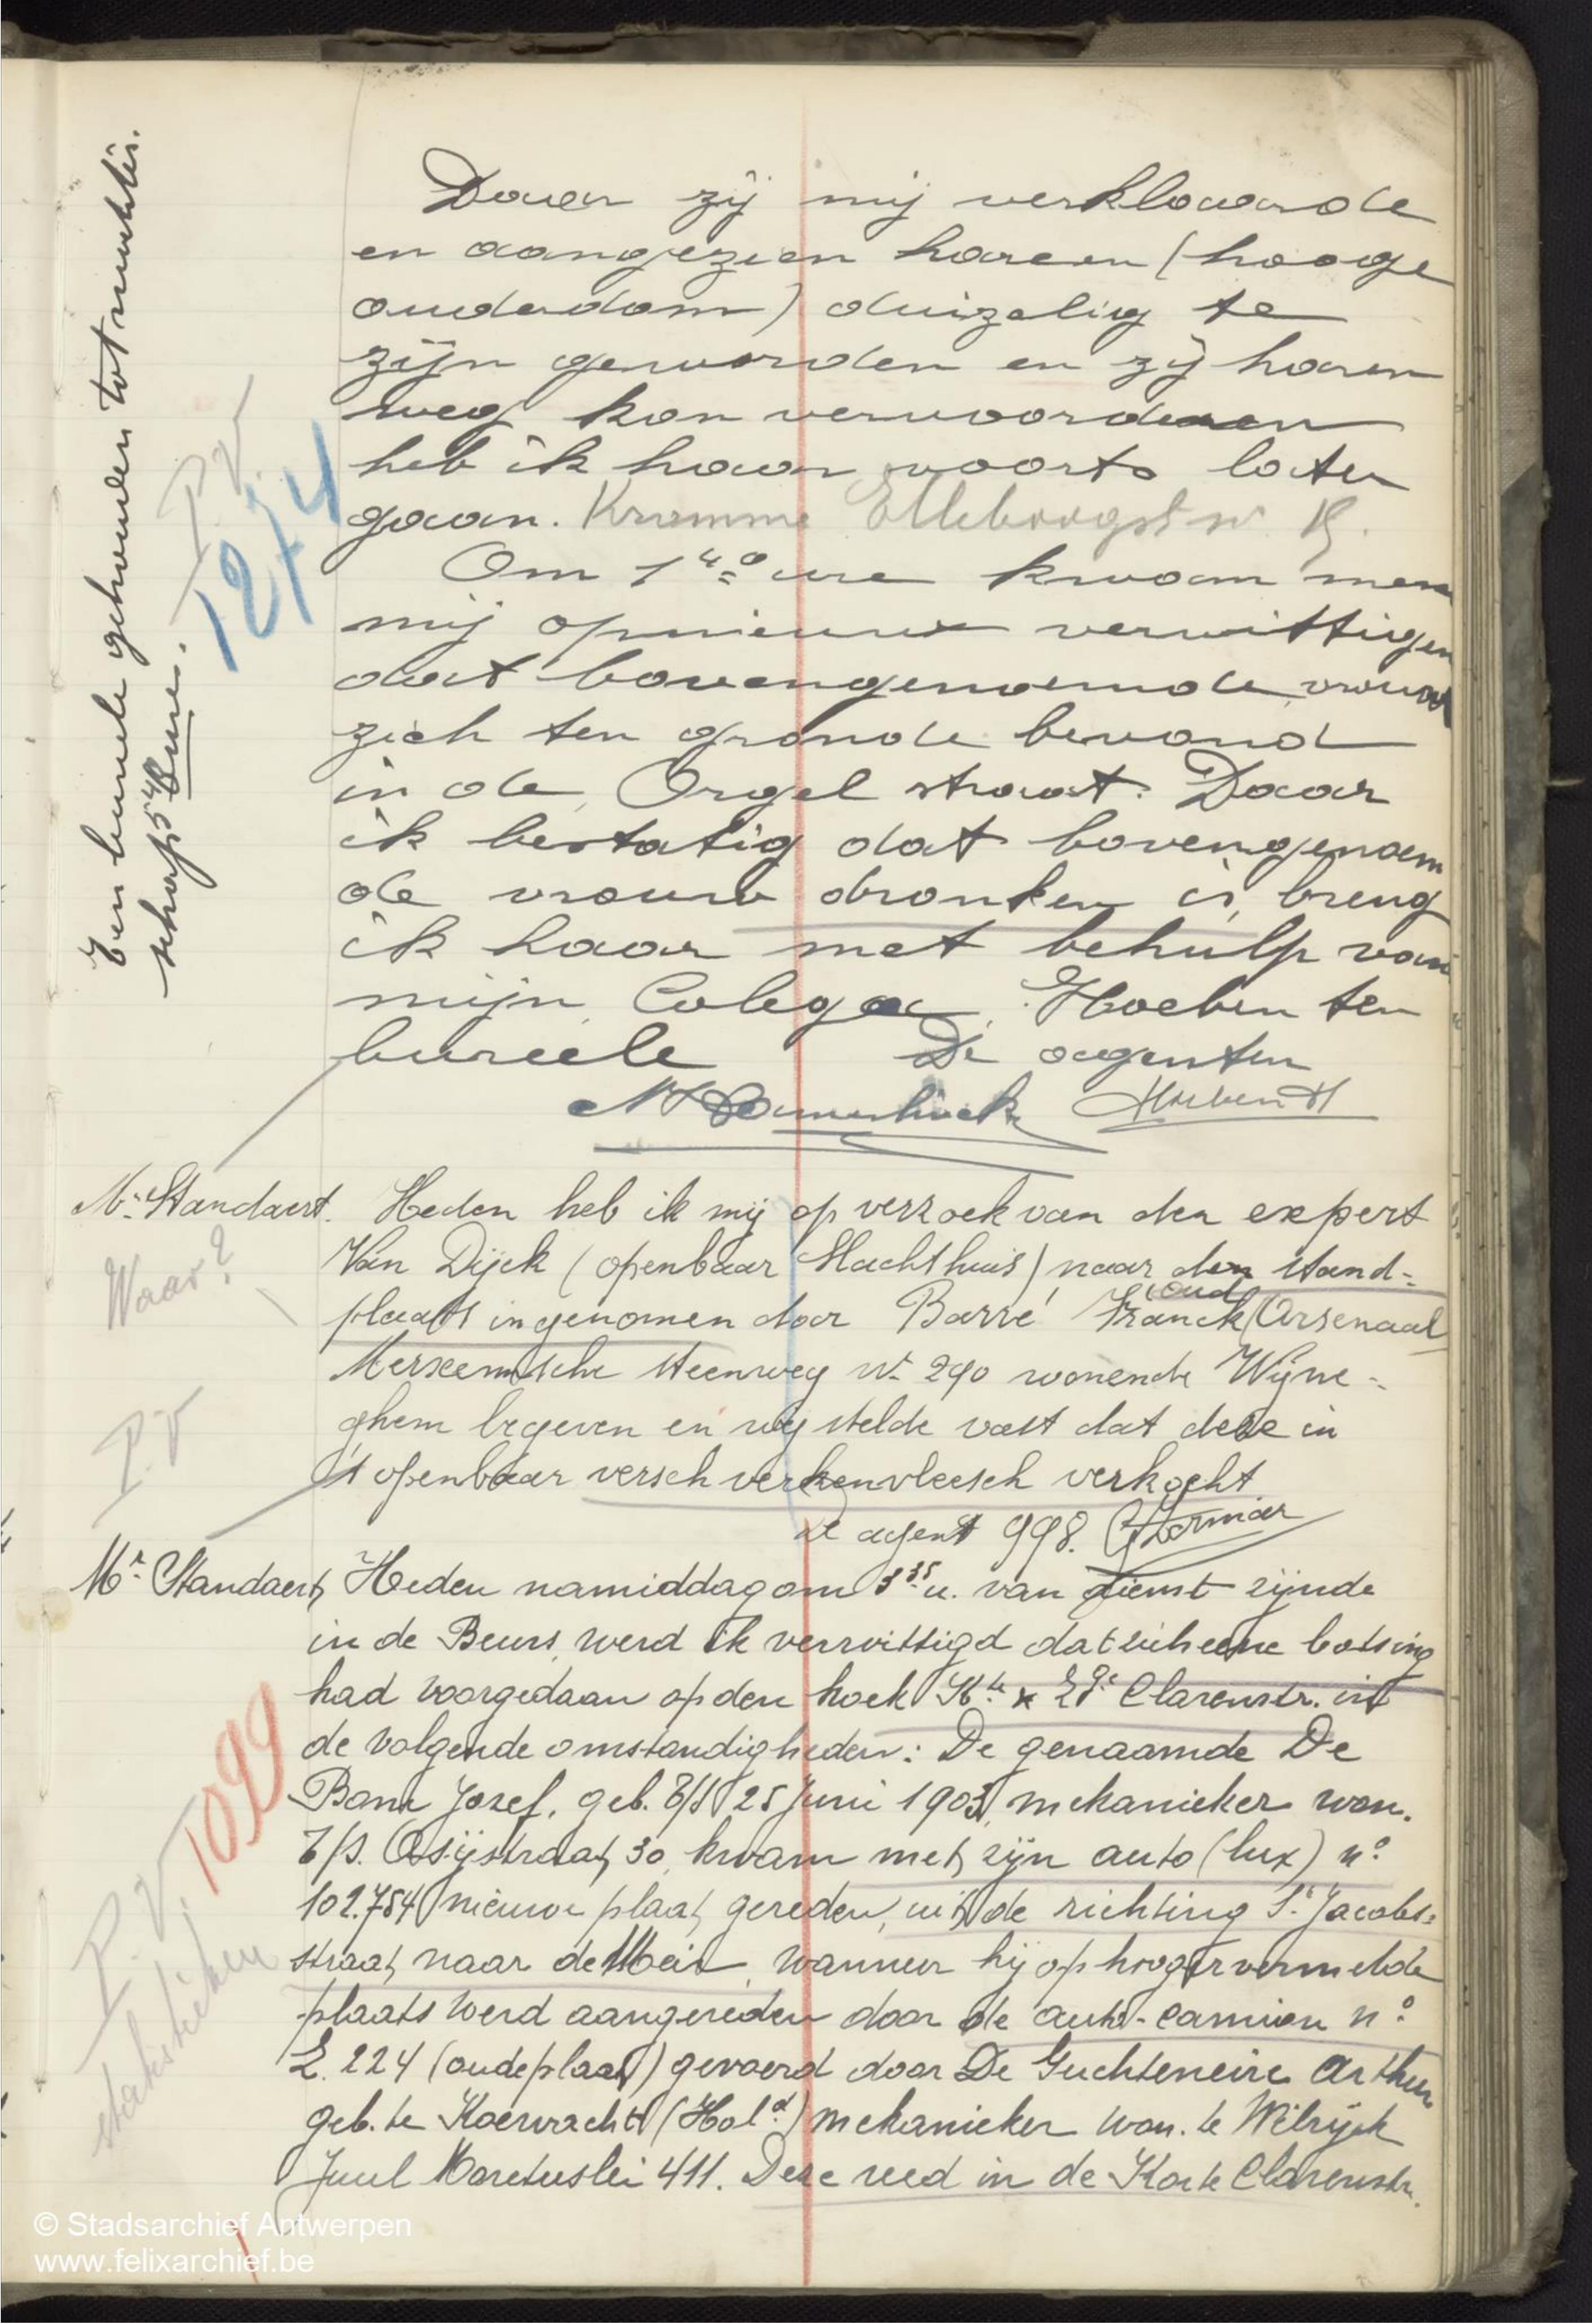 Een bureele gehouden tot nuchter
schap 5⁴⁵ ure.
P.V.
12/4
Daar zij mij verklaarde
en aangezien haren (hooge
ouderdom) duizelig te
zijn geworden en zij haren
weg kon vervoorderen
heb ik haar voorts laten
gaan. Kromme Elleboogst nr
Om 1⁴⁰ ure kwam men
mij opnieuw verwittigen
dat bovengenoemde vrouw
zich ten gronde bevond
in de Orgel straat. Daar
ik bestatig dat bovengenoem
de vrouw dronken is, breng
ik haar met behulp van
mijn Colega Hoeben ten
bureele De agenten
Hoeben H
Mr. Standaert. Heden heb ik mij op verzoek van den expert
Van Dijck (openbaar Slachthuis) naar den stand=
plaats ingenomen door Barré Franck (oud Arsenaal
Merxemsche steenweg Nr 290 wonende Wijne=
ghem begeven en wij stelde vast dat deze in
't openbaar versch verkenvleesch verkocht
De agent 998.
Waar?
P.V
Mr. Standaert, Heden namiddag om 3³⁵ u. van dienst zijnde
in de Beurs, werd ik verwittigd dat zich eene botsing
had voorgedaan op den hoek Kte x Lge Clarenstr. in
de volgende omstandigheden: De genaamde De
Bom Jozef, geb. T/S 25 Juni 1903, mekanieker won.
T/S. Osijstraat, 30, kwam met zijn auto (lux) n°
102.784 nieuwe plaat, gereden, uit de richting St Jacobs=
straat, naar de Meir, wanneer hij op hoogervermelde
plaats werd aangereden door de auto-camion n°
2.224 (oude plaat) gevoerd door De Guchteneire Arthur
geb. te Koewacht (Hold.) mekanieker won. te Wilrijck
Juul Moretuslei 411. Deze reed in de Korte Clarenstr.
P.V. 1099
statistieken
© Stadsarchief Antwerpen
www.felixarchief.be